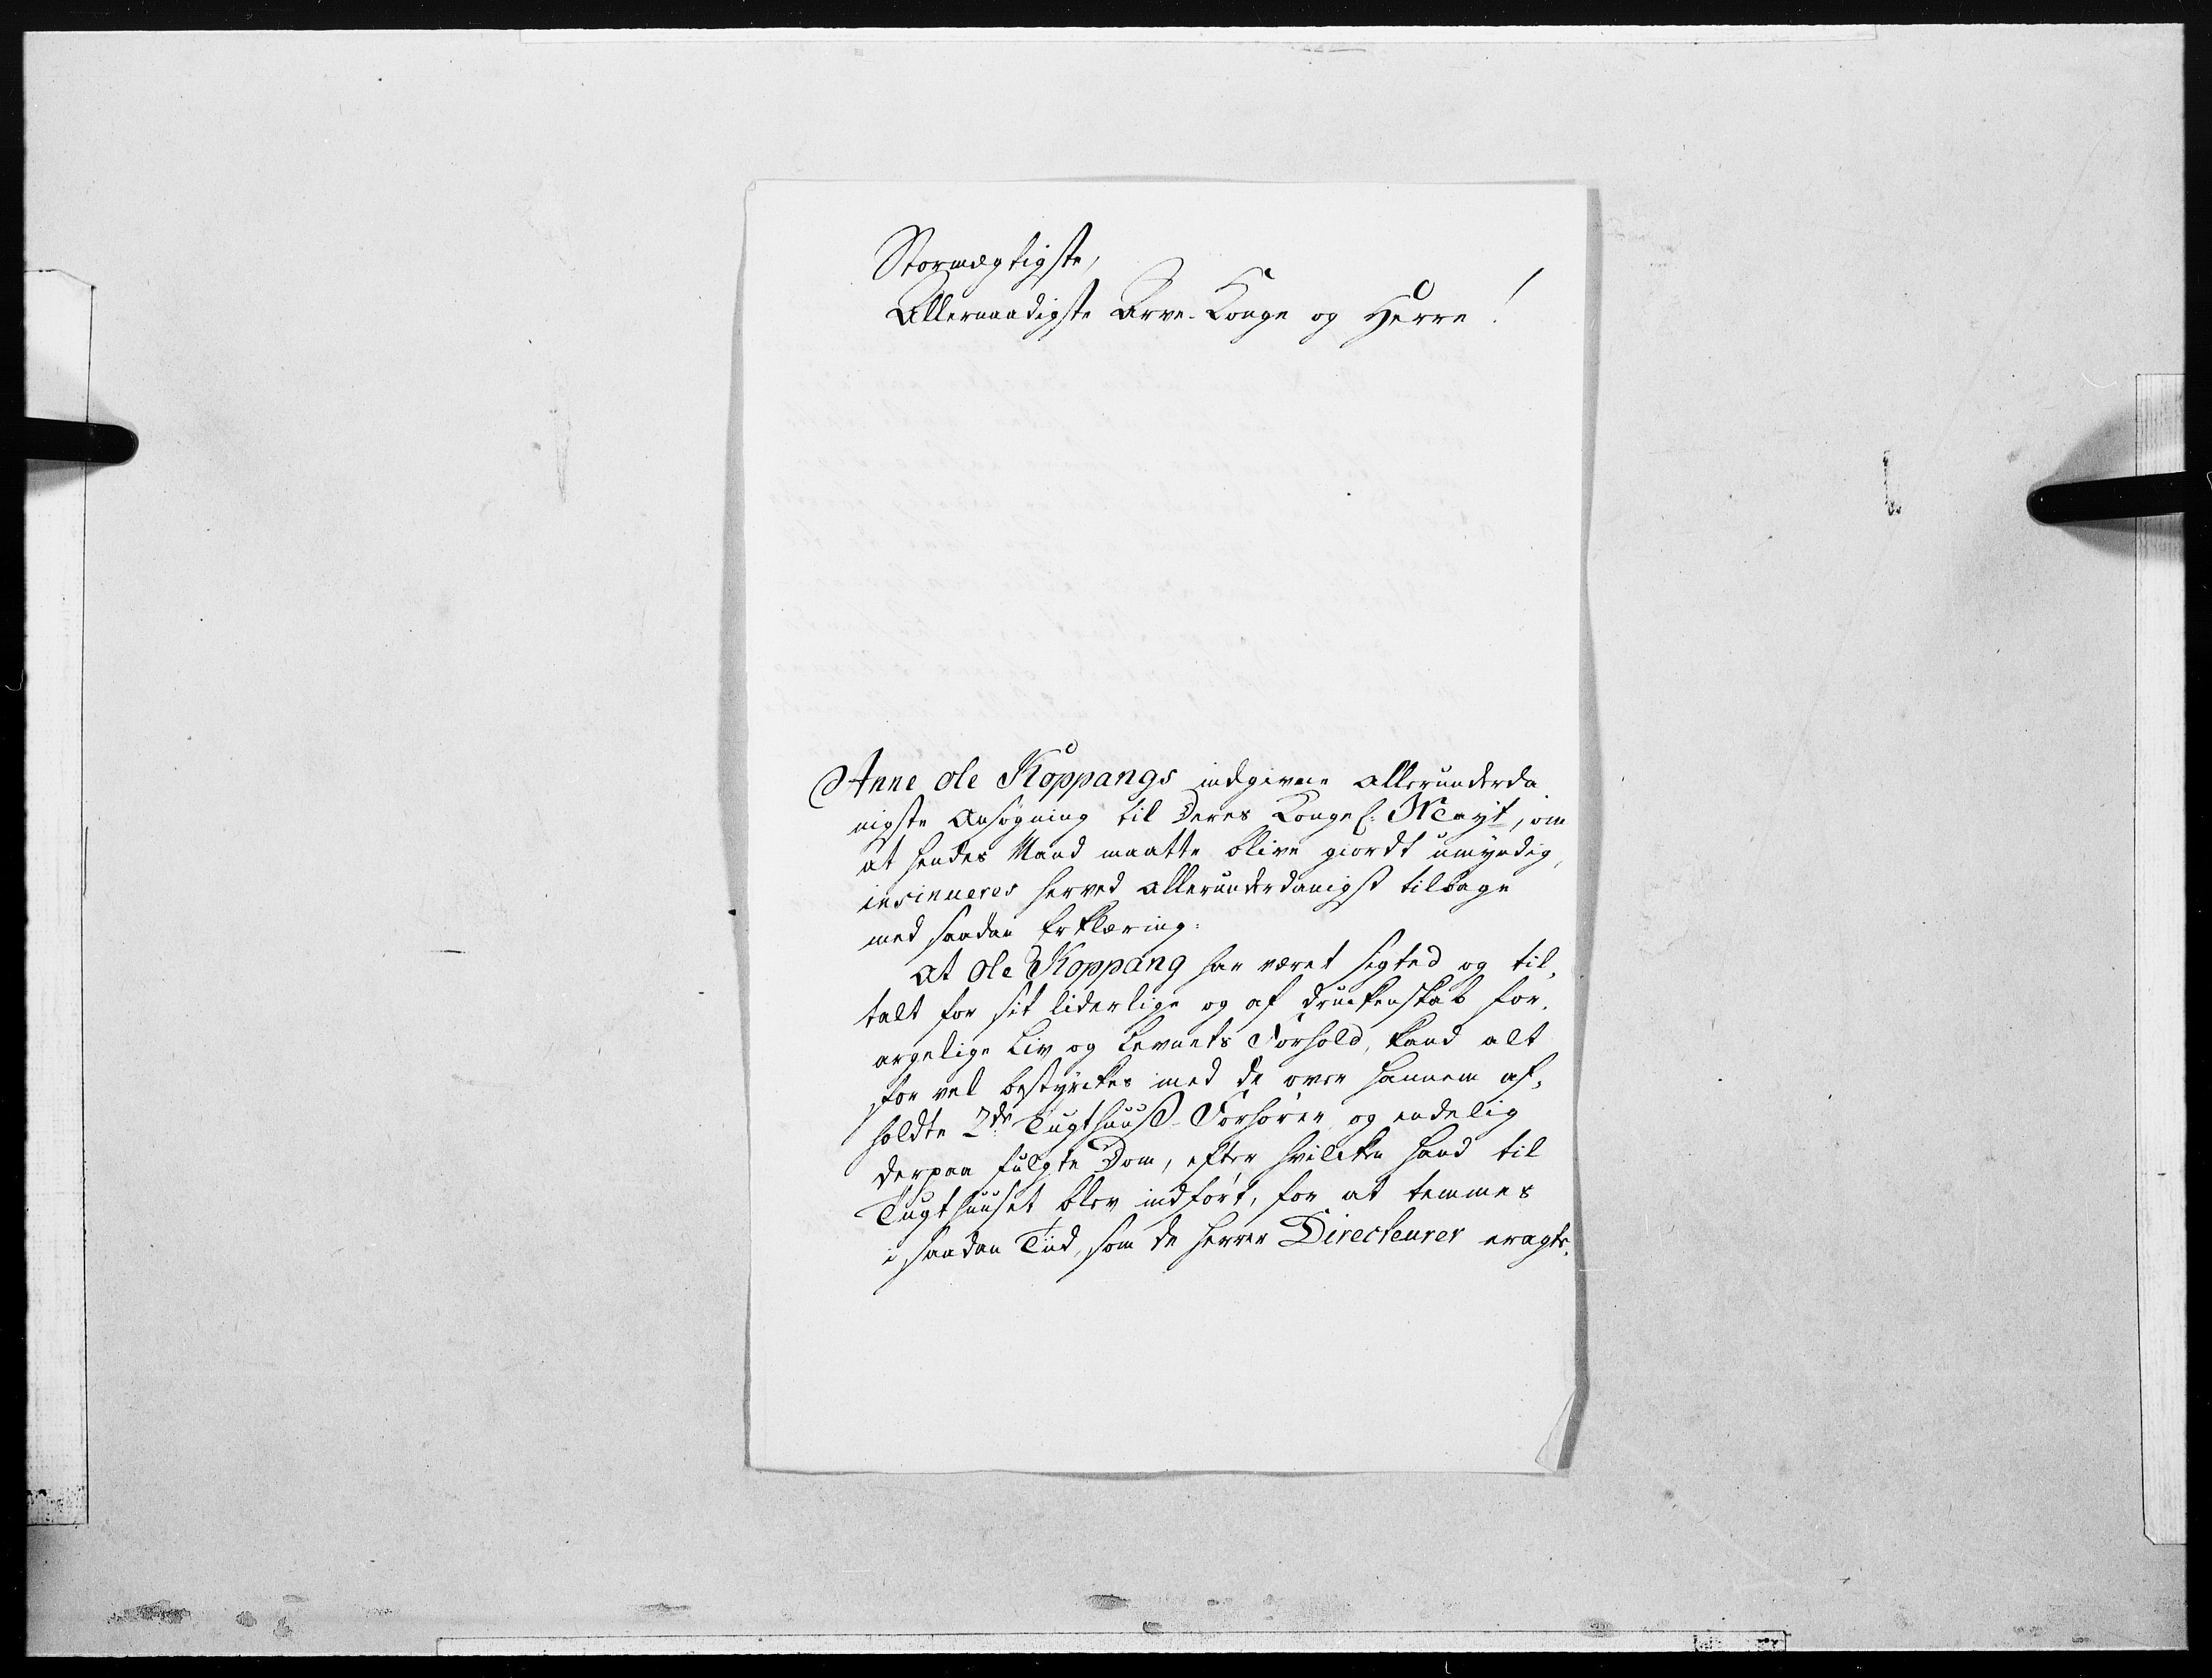 Stormægtigste,
Allernaadigste Arve-Konge og Herre!
Anne Ole Koppangs indgivne allerunderda
nigste Ansøgning til Deres Kongel: Mayt, om
at hendes Mand maatte blive giordt umyndig,
insinueres herved allerunderdanigst tilbage
med saadan Erklæring:
At Ole Koppang har været sigted og til,
talt for sit liderlige og af Druckenskab for,
argelige Liv og Levnets Forhold, kand alt
for vel bestyrckes med de over hannem af,
holdte 2de Tugthuuß-Forhører og endelig
derpaa fulgte Dom, efter hvilcken hand til
Tugthuuset blev indført, for at temmes
i saadan Tiid, som de Herrer Directeurer eragte,